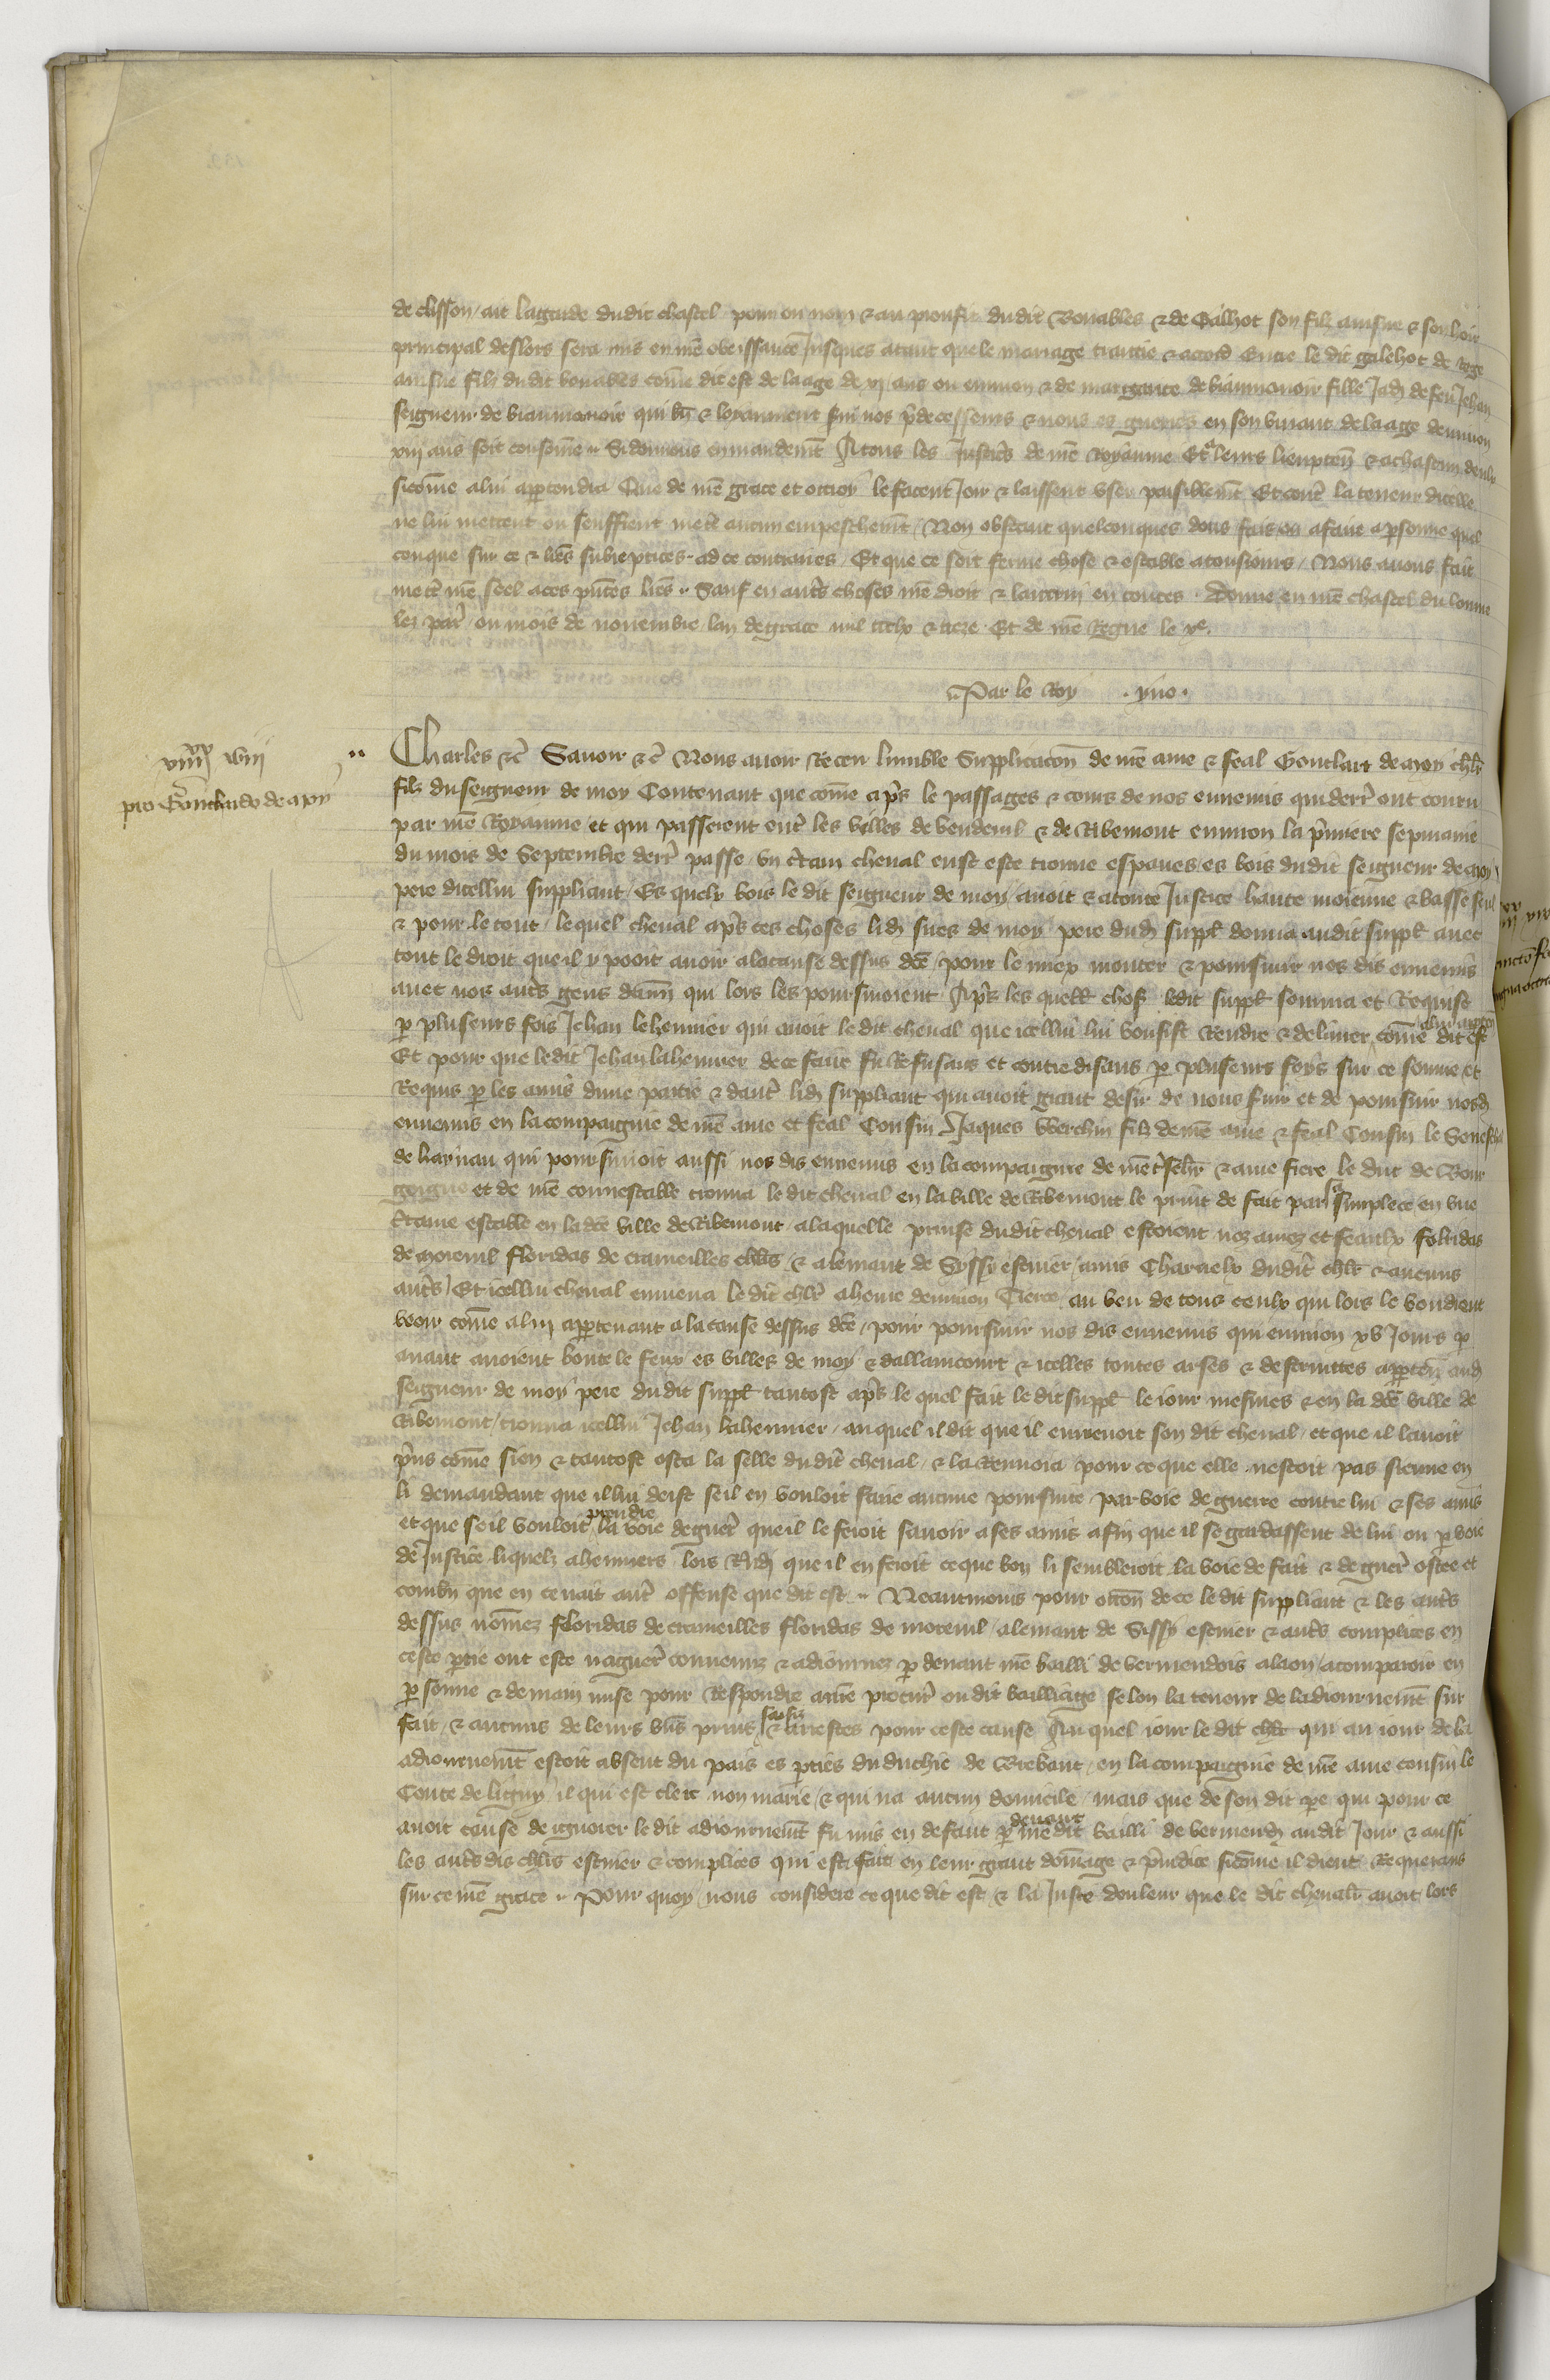 de clisson / ait lagarde dudit chastel pour ou nom & au proufit dudit Bonables & de Galhot son filz ainsne & son hoir
principal deslors sera mis en nre obeissance Jusques atant que le mariage traittie & acorde Entre le dit galehot de Roge
ainsne filz du dit bonables come dit est de laage de xj ans ou environ & de margarite de biaumanoir fille Jadiz de feu Jehan
seigneur de biaumanoir qui bn & loyaument servi nos pdecesseurs & nous es guerres en son vivant de laage denviron
xiij ans soit consome .. Si donnons en mandemt A tous les Justics de nre Royaume Et a leurs lieuxten & achascun deulx
sicome a lui appartendra Que de nre grace et ottroy le facent Joir & laissent user paisiblemt Et contre la teneur dicelle
ne lui mettent ou seuffrent mettre aucun empeschemt / Non obstant quelconques dons fais ou afaire a psonne quel
conque sur ce & lres subreptices ad ce contraires / Et que ce soit ferme chose & estable atousiours / Nous avons fait
mettre nre seel aces pntes lres .. Sauf en autres choses nre droit & lautrui en toutes . Donne en nre chastel du louvre
lez paris ou mois de novembre lan de grace mil ccclx & treze . Et de nre Regne le xe.
.. Par le Roy . yvo .
viijxx xviij
pro Gouchardo de moy
Charles &c Savoir &c Nous avoir Receu lumble Supplicacon de nre ame & feal Gouchart de moy chlr
filz du seigneur de moy Contenant que come apres le passages & cours de nos ennemis qui derr ont couru
par nre Royaume et qui passerent entre les villes de vendeuil & de Ribemont environ la pmiere sepmaine
du mois de Septembre derr passe / un ctain cheval eust este trouve espaves es bois dudit seigneur de moy
pere dicellui suppliant / Es quelx bois le dit seigneur de moy avoit & a toute Justice haute moienne & basse seul
& pour le tout / lequel cheval apres ces choses lidiz sires de moy pere dudit suppl donna audit suppl avec
tout le droit que il y pooit avoir alacause dessus dce / pour le miex monter & poursuir nos dis ennemis
avec nos autres gens darmes qui lors les poursuioient Apres les quelles choses ledit suppl somma et Requist
p pluseurs fois Jehan lehenuier qui avoit le dit cheval que icellui lui vousist Rendre & delivrer come a lui apparten dit est
Et pour que ledit Jehan lahenuier de ce faire fu Refusans et contredisans p pluseurs foys sur ce somme et
Requis p les amis dune partie & dautre lidiz suppliant qui avoit grant desir de nous suir et de poursuir nosdiz
ennemis en la compaignie de nre ame et feal Cousin Jaques Werchin filz de nre ame & feal Cousin le Senesch
de haynau qui poursuioit aussi nos dis ennemis en la compaignie de nre tschr & ame frere le duc de Bour
goigne et de nre connestable trouva le dit cheval en la ville de Ribemont le print de fait par sa simplece en une
ctaine estable en ladce ville de Ribemont / alaquelle prinse dudit cheval estoient noz amez et feaulx floridas
de moreuil floridas de crameilles chlrs / & alemant de Syssy escuier / amis Charnelx dudit chlr & aucuns
autres / Et icellui cheval emmena le dit chlr aheure denviron Tierce au veu de tous ceulx qui lors le vouldrent
veoir come a lui appartenant a la cause dessus dce / pour poursuir nos dis ennemis qui environ xv Jours p
avant avoient boute le feux es villes de moy & dallaincourt & icelles toutes arses & destruittes apparten audiz
seigneur de moy pere du dit suppl tantost apres le quel fait le dit suppl le iour mesmes & en la dce ville de
Ribemont / trouva icellui Jehan lahenuier / auquel il dit que il enmenoit son dit cheval / et que il lavoit
pris come sien & tantost osta la selle du dit cheval / & la Renvoia pour ce que elle nestoit pas sienne en
li demandant que il lui deist seil en vouloit faire aucune poursuite par voie de guerre contre lui & ses amis
et que se il vouloit prendre la voie de guerre que il le feroit savoir a ses amis afin que il se gardassent de lui ou p voie
de Justice liquelz ahenuiers lors Rndi que il en feroit ce que bon li sembleroit la voie de fait & de guerre ostee et
combn que en ce nait autre offense que dit est .. Neantmoins pour occon de ce le dit suppliant & les autres
dessus nomez floridas de crameilles floridas de moreuil / alemant de Sissy escuier & autres complices en
ceste ptie ont este naguere convenuz & adiournez p devant nre bailli de vermendois alaon / acomparoir en
psonne & de main mise pour Respondre a nre procur ou dit bailliage selon la teneur de ladiournemt sur
fait / & aucuns de leurs bns prins saisis & arrestez pour ceste cause Au quel iour le dit chlr qui au iour de la
adiournemt estoit absent du pais es pties du duchie de Breban / en la compaignie de nre ame cousin le
Conte de ligny / il qui est clerc non marie / & qui na aucun domicile / mais que de son dit pe qui pour ce
avoit cause de ignorer le dit adiournemt fu mis en defaut p devant nre dit bailli de vermendois audit Jour & aussi
les autres dis chlrs escuier & complices qui est fait en leur grant domage & preiudice sicome il dient Requerans
sur ce nre grace .. Pour quoy nous considere ce que dit est / & la Juste douleur que le dit chevalr avoit lors